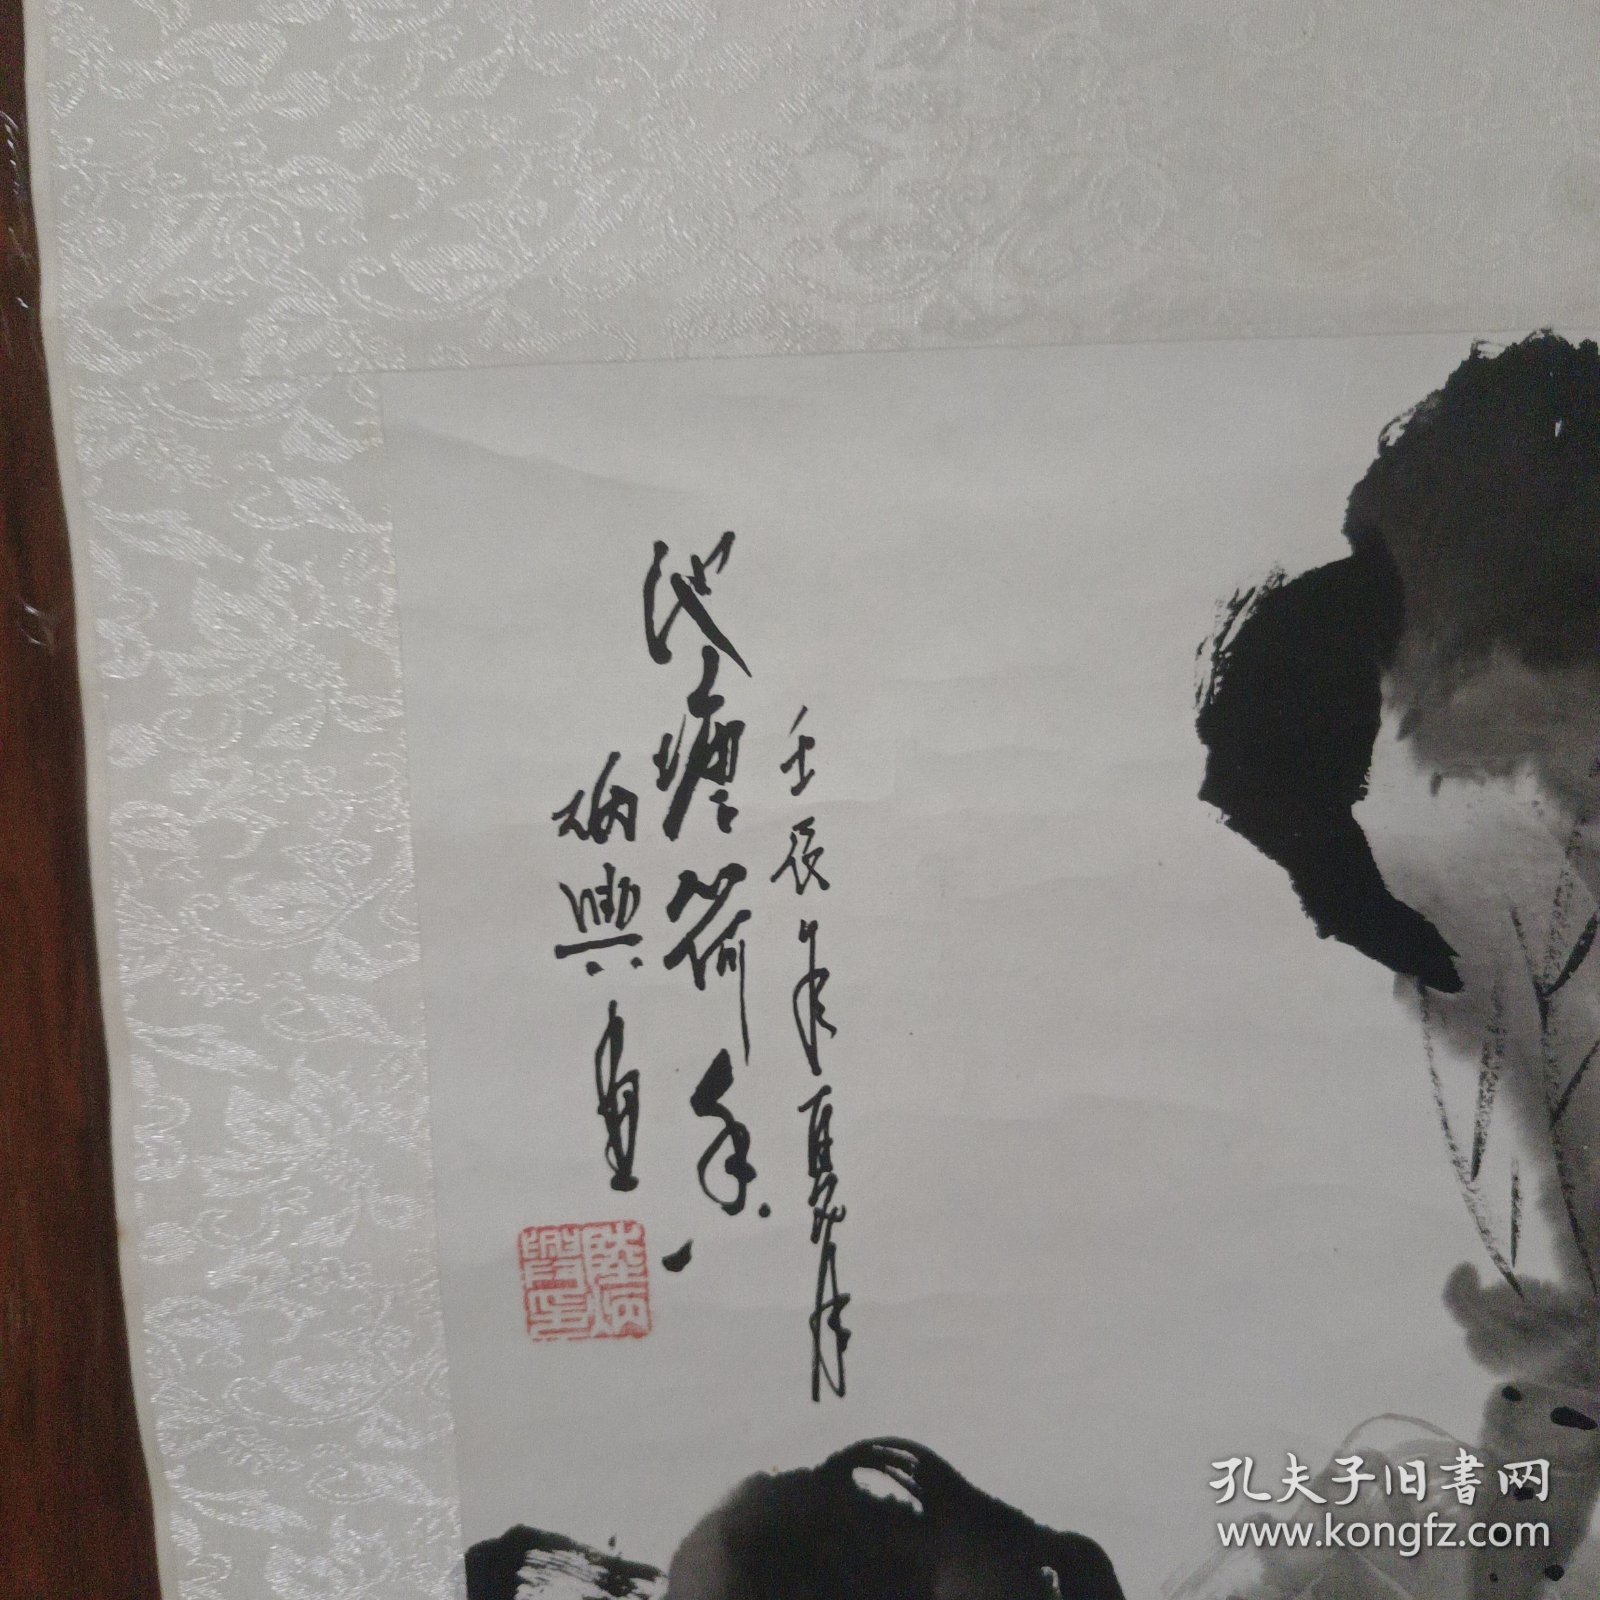 壬辰年夏月
池塘荷香
炳興画
陸炳
孔夫子旧書网
www.kongfz.com